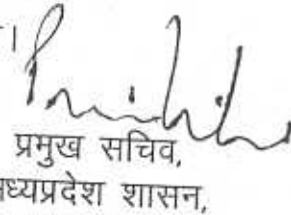 प्रमुख सचिव,
मध्यप्रदेश शासन,